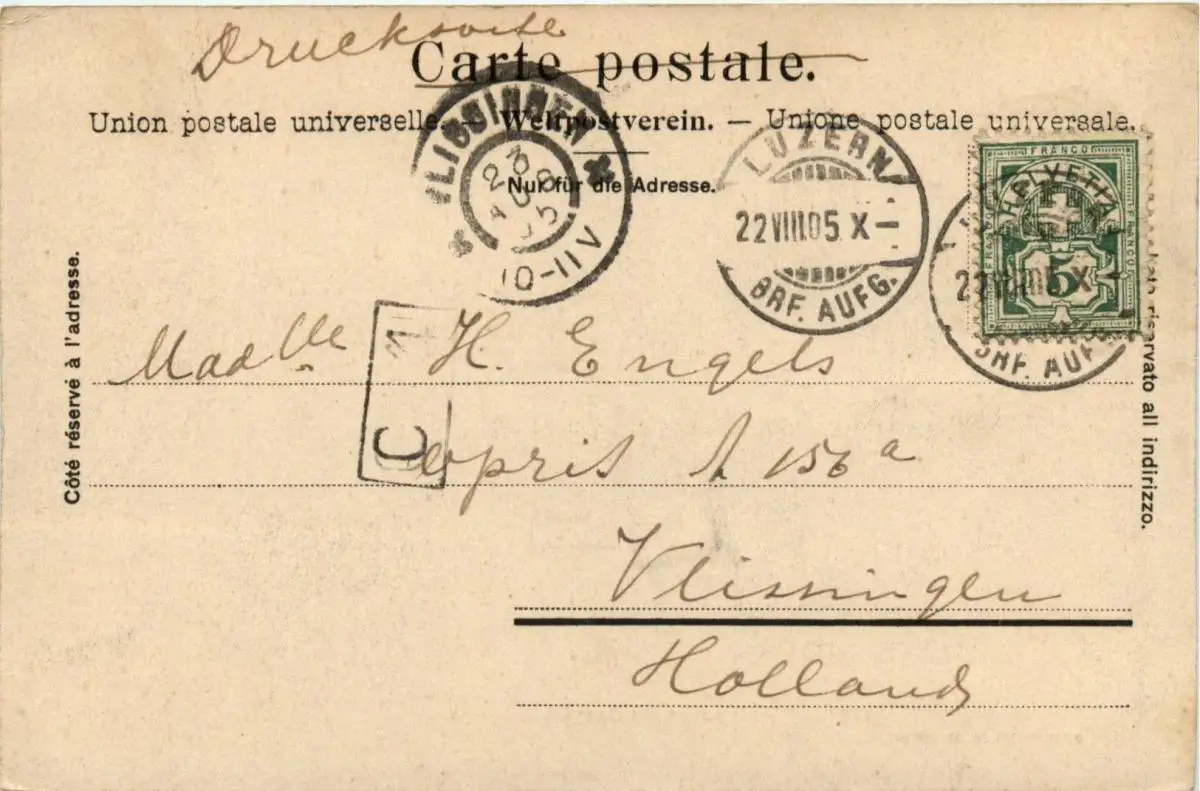 Drucksache
Carte postale.
Union postale universelle. — Weltpostverein. — Unione postale universale.
Nur für die Adresse.
VLISSINGEN
23 AUG 05
10-11V
LUZERN
22 VIII 05 X —
BRF. AUFG.
FRANCO
HELVETIA
FRANCO
FRANCO
5
22 VIII 05 X —
BRF. AUFG.
Côté réservé à l'adresse.
riservato all indirizzo.
W
C
Madlle H. Engels
156a
Vlissingen
Holland